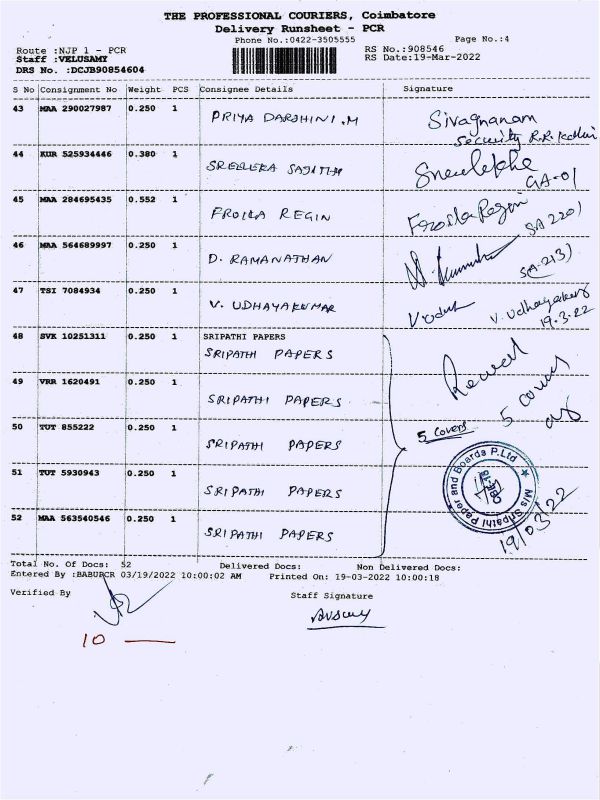 THE PROFESSIONAL COURIERS, Coimbatore
Delivery Runsheet - PCR
Phone No.:0422-3505555 Page No.:4
Route :NJP 1 - PCR RS No.:908546
Staff :VELUSAMY RS Date:19-Mar-2022
DRS No. :DCJB90854604
S No Consignment No Weight PCS Consignee Details Signature
43 MAA 290027987 0.250 1 PRIYA DARSHINI.M Sivagnanam
Security R.R.
44 KUR 525934446 0.380 1 SREELEKA SAJITHA Sreelekha
GA-01
45 MAA 284695435 0.552 1 FROILA REGIN Regin
SA 2201
46 MAA 564689997 0.250 1 D. RAMANATHAN
SA-213)
47 TSI 7084934 0.250 1 V. UDHAYAKUMAR V. Udhayakumar
19.3.22
48 SVK 10251311 0.250 1 SRIPATHI PAPERS
SRIPATHI PAPERS
49 VRR 1620491 0.250 1 SRIPATHI PAPERS 5 covers
50 TUT 855222 0.250 1 SRIPATHI PAPERS 5 covers
51 TUT 5930943 0.250 1 SRIPATHI PAPERS
M/s Sripathi Paper and Boards P.Ltd
52 MAA 563540546 0.250 1 SRIPATHI PAPERS 19/03/22
Total No. Of Docs: 52 Delivered Docs: Non Delivered Docs:
Entered By :BABUPCR 03/19/2022 10:00:02 AM Printed On: 19-03-2022 10:00:18
Verified By Staff Signature
10